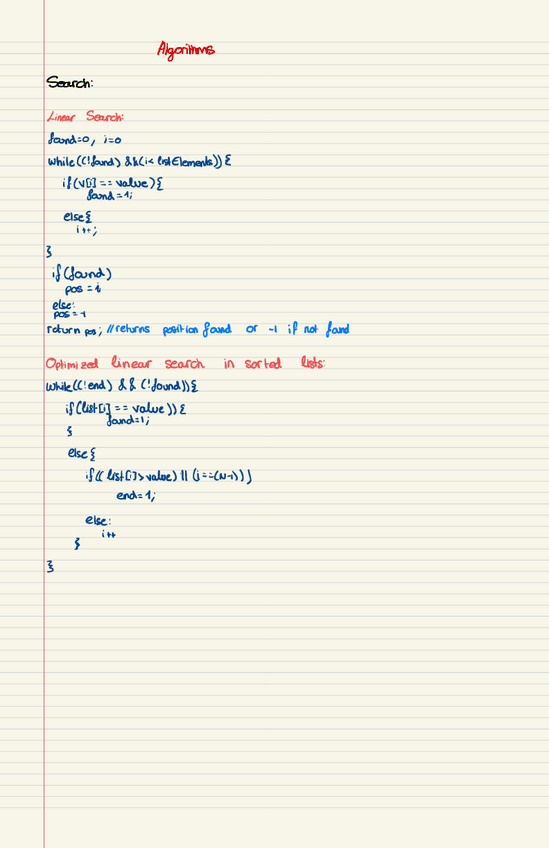 Algorithms
Search:
Linear Search:
found=0, i=0
while((!found) &&(i< listElements)) {
if(v[i] == value){
found =1;
else{
i++;
}
if(found)
pos = i
else:
pos = -1
return pos; //returns position found or -1 if not found
Optimized linear search in sorted lists:
while((!end) && (!found)){
if(list[i] == value)) {
found=1;
}
else{
if(( list[i]>value) || (i==(N-1)) )
end=1;
else:
i++
}
}